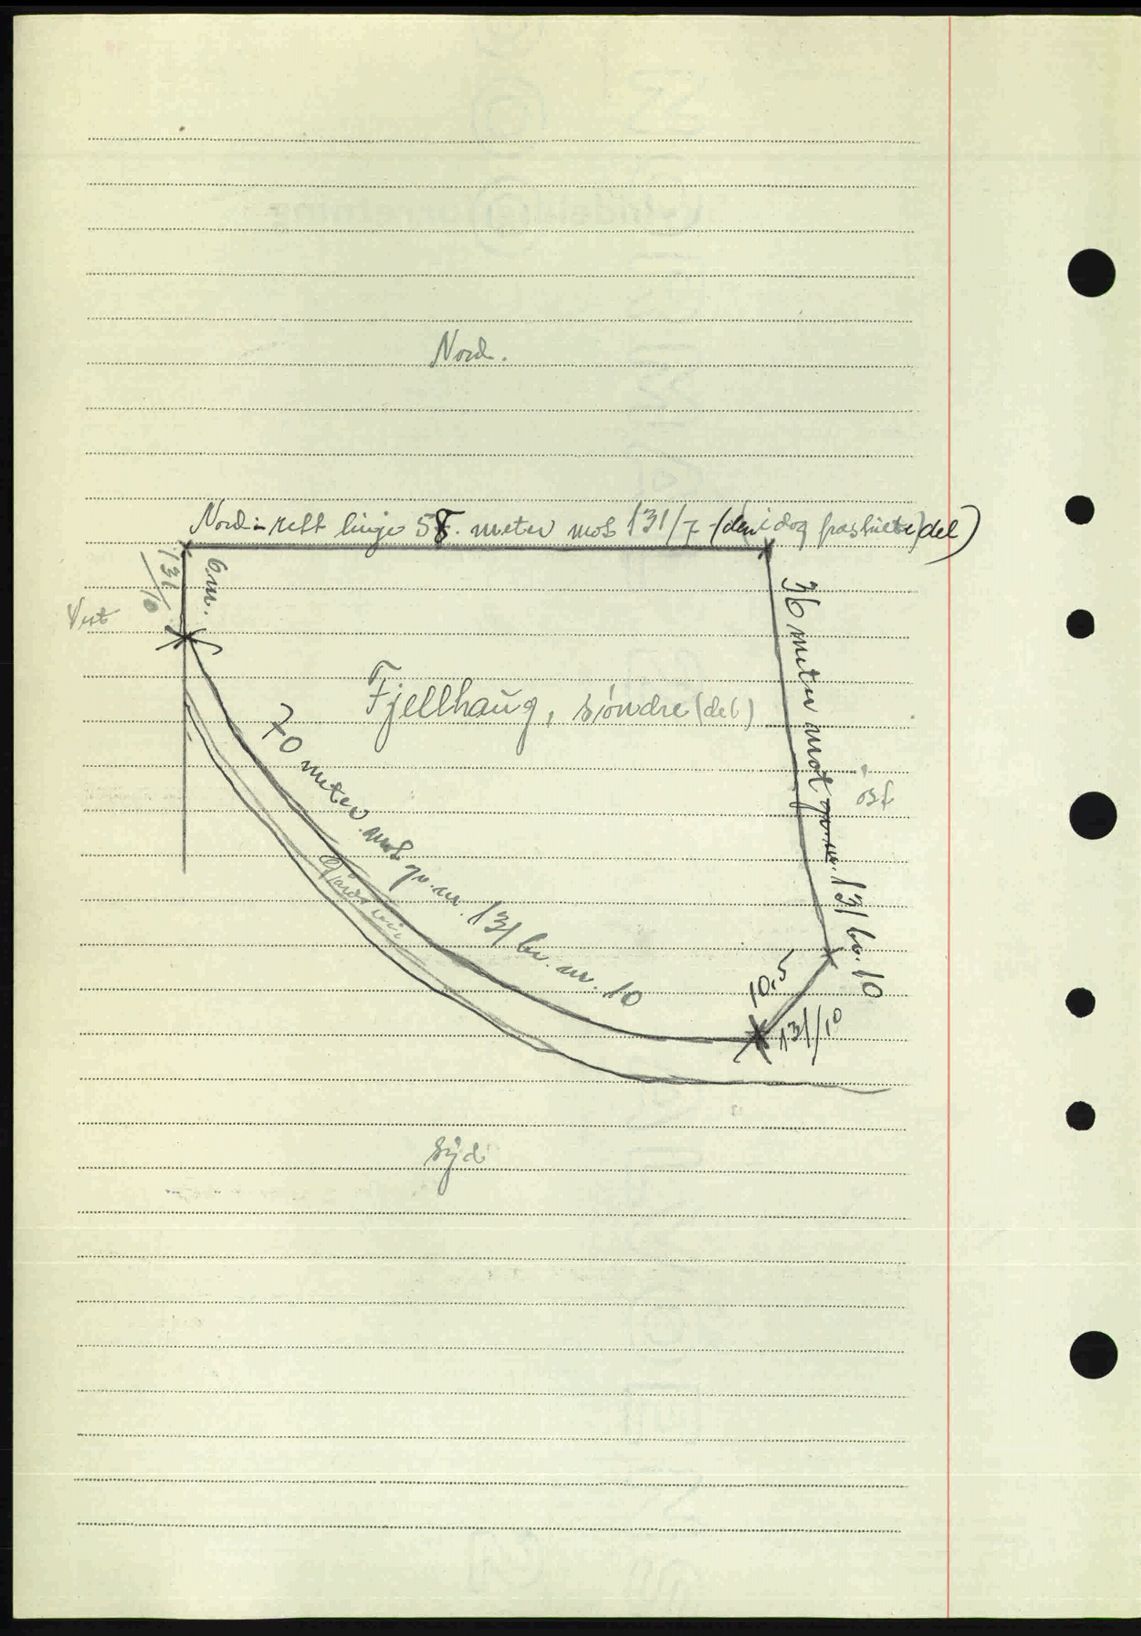 Nord.
Nord - rett linje 58. meter mot 131/7 (den idag fraskilte del)
131/10
6 m.
Vest
Fjellhaug, søndre (del)
36 meter mot gr. nr. 131 br. 10
øst
70 meter mot gr. nr. 131 br. nr. 10
10,5
131/10
Syd